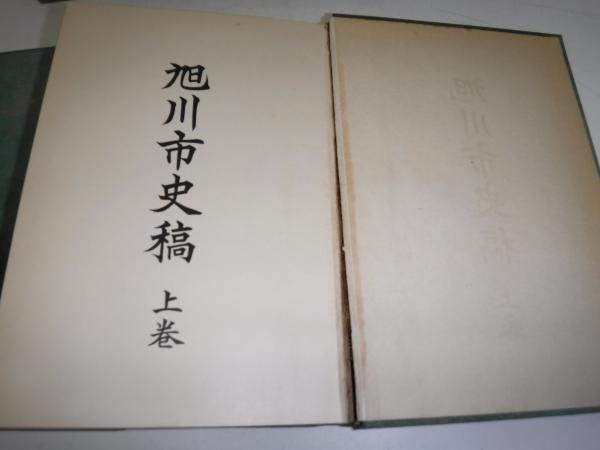 旭川市史稿
上巻